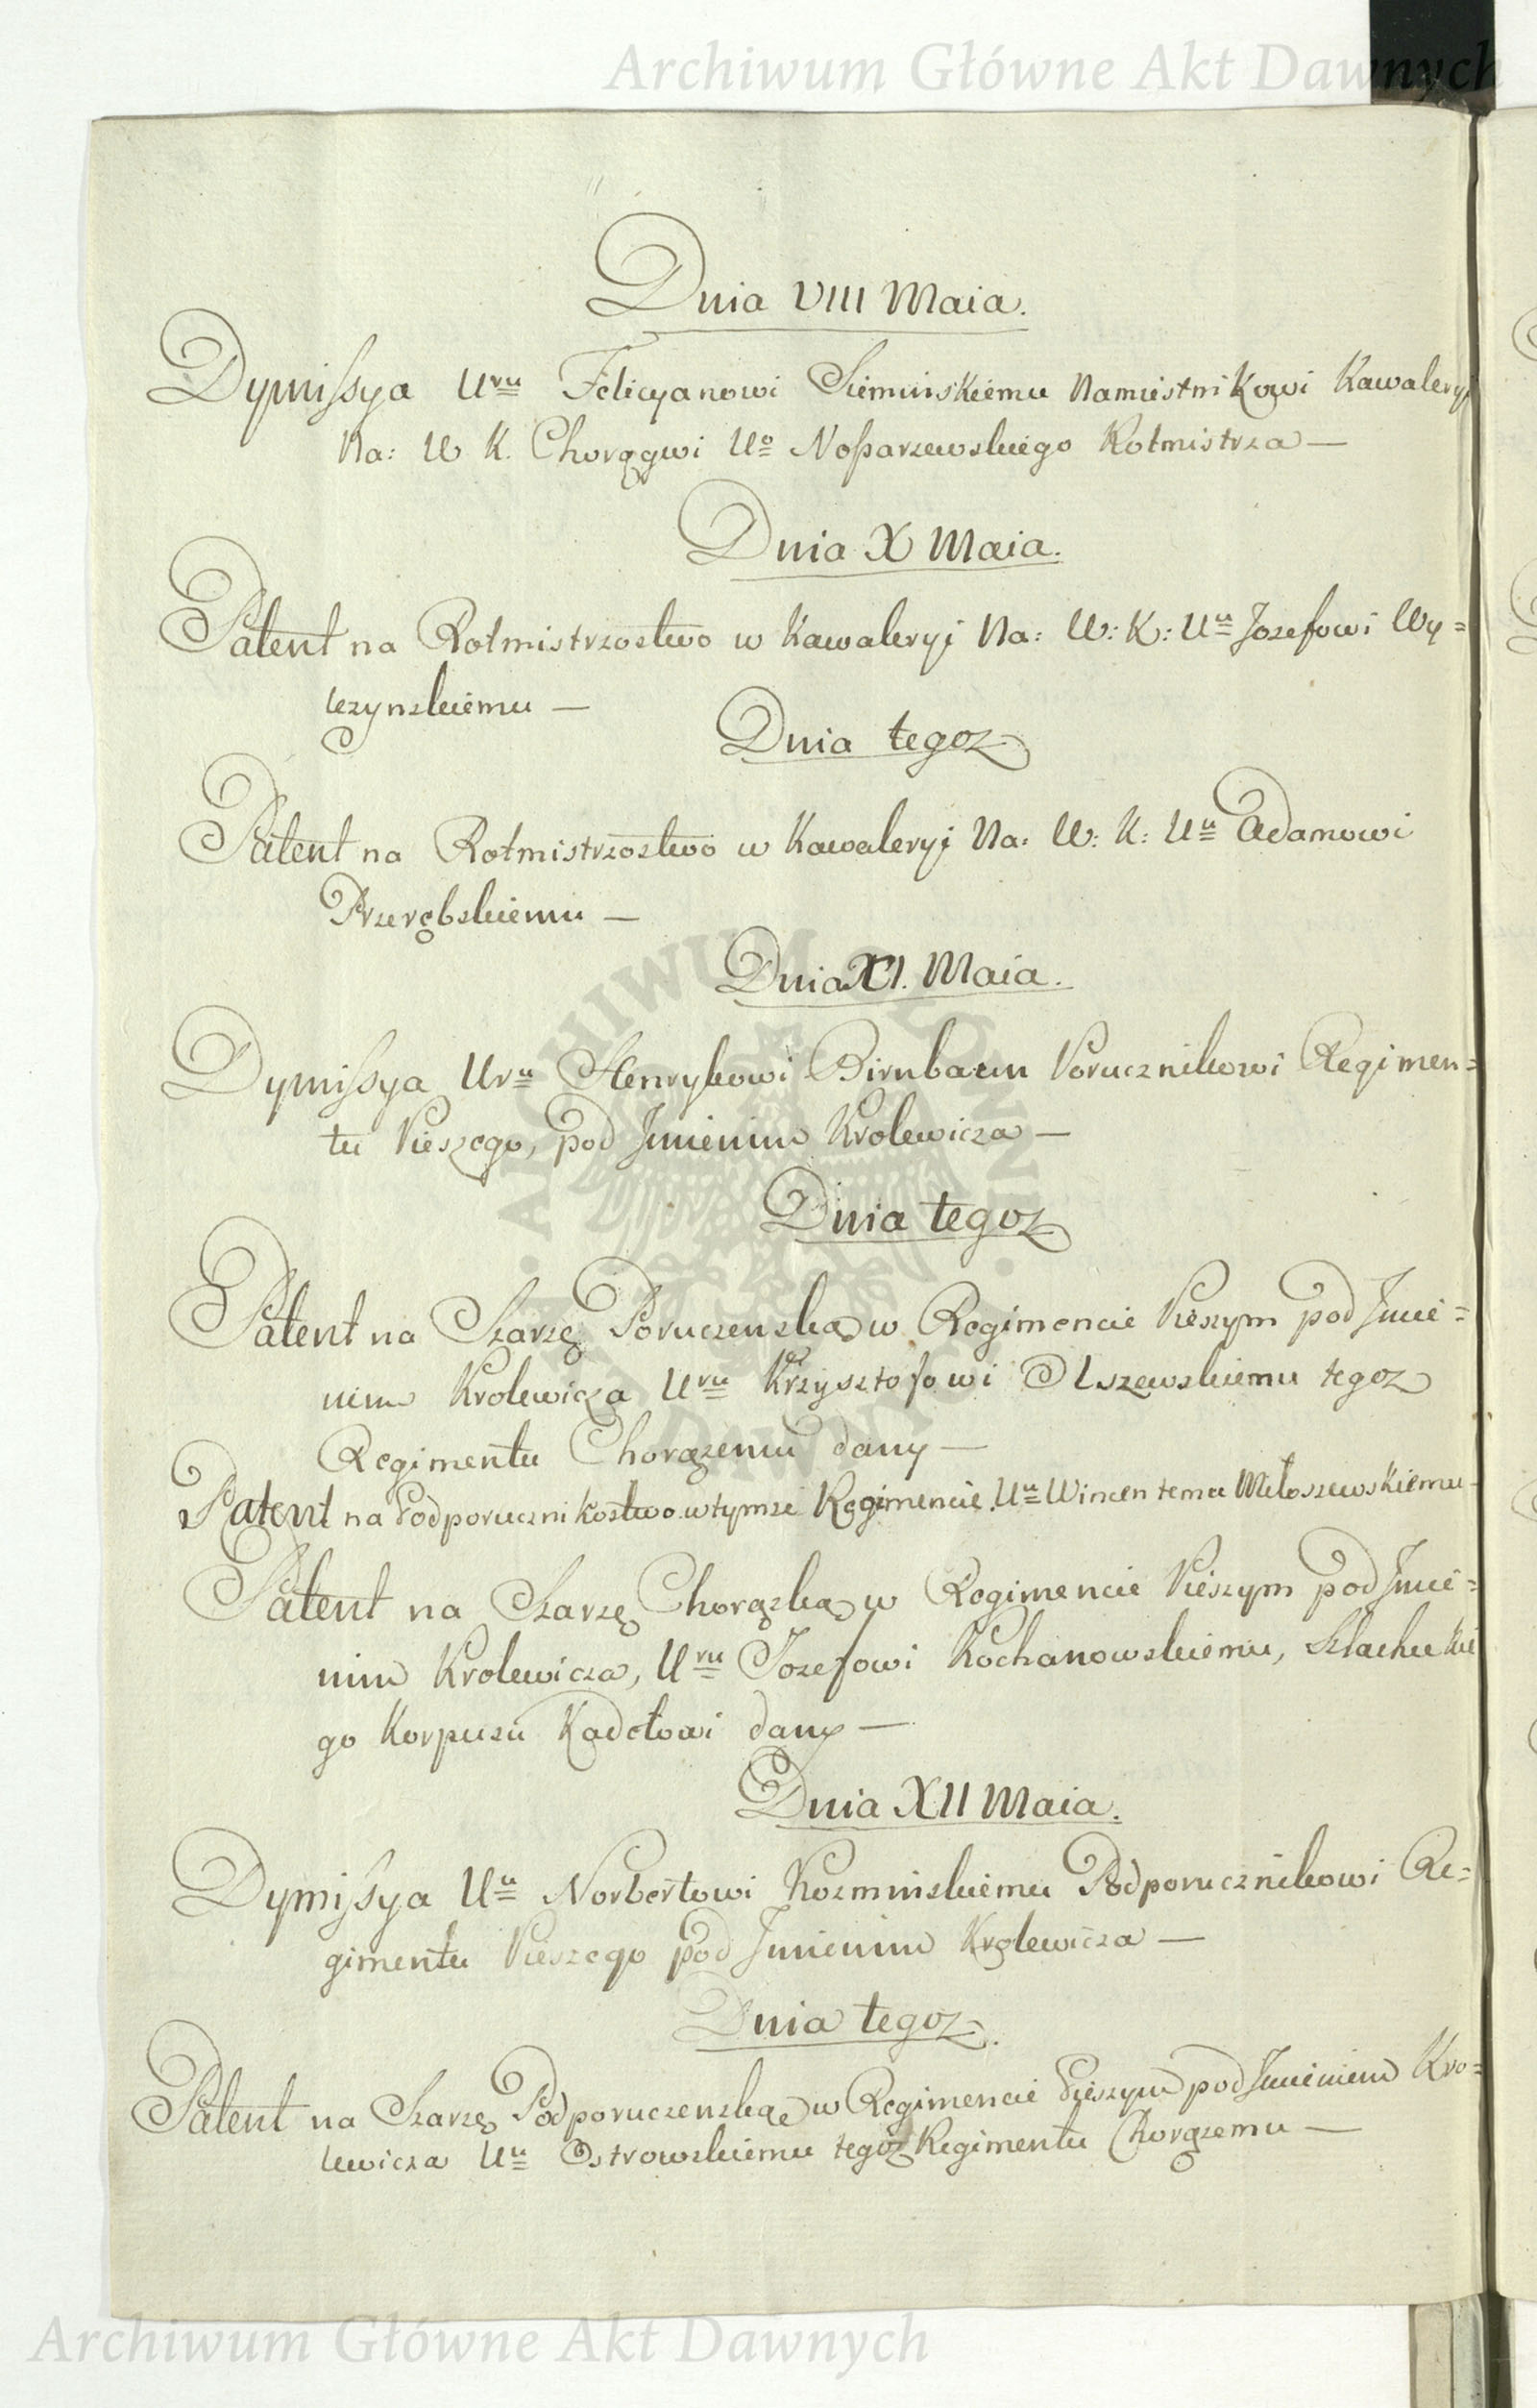 Archiwum Główne Akt Dawnych
Dnia VIII Maia.
Dymissya Uru Felicyanowi Sieminskiemu Namiestnikowi Kawaleryi
Na: W K. Chorągwi Uo Nossarzewskiego Rotmistrza —
Dnia X Maia.
Patent na Rotmistrzostwo w Kawaleryi Na: W: K: Uu Jozefowi Wy=
czynskiemu —
Dnia tegoz
Patent na Rotmistrzostwo w Kawaleryi Na: W: K: Uu Adamowi
Przerębskiemu —
Dnia XI. Maia.
Dymissya Uru Henrykowi Birnbaum Porucznikowi Regimen=
tu Pieszego, pod Jmieniem Krolewicza —
Dnia tegoz
Patent na Szarzę Poruczenską w Regimencie Pieszym pod Jmie=
niem Krolewicza Uru Krzysztofowi Olszewskiemu tegoz
Regimentu Chorązemu dany —
Patent na Podporucznikostwo w tymze Regimencie Uu Wincentemu Miłoszewskiemu
Patent na Szarzę Chorązką w Regimencie Pieszym pod Jmie=
niem Krolewicza, Uru Jozefowi Kochanowskiemu, Szlacheckie
go Korpusu Kadetowi dany —
Dnia XII Maia.
Dymissya Uu Norbertowi Kozminskiemu Podporucznikowi Re=
gimentu Pieszego pod Jmieniem Krolewicza —
Dnia tegoz.
Patent na Szarzę Podporuczenską w Regimencie Pieszym pod Jmieniem Kro=
lewicza Uu Ostrowskiemu tegoz Regimentu Chorązemu —
Archiwum Główne Akt Dawnych